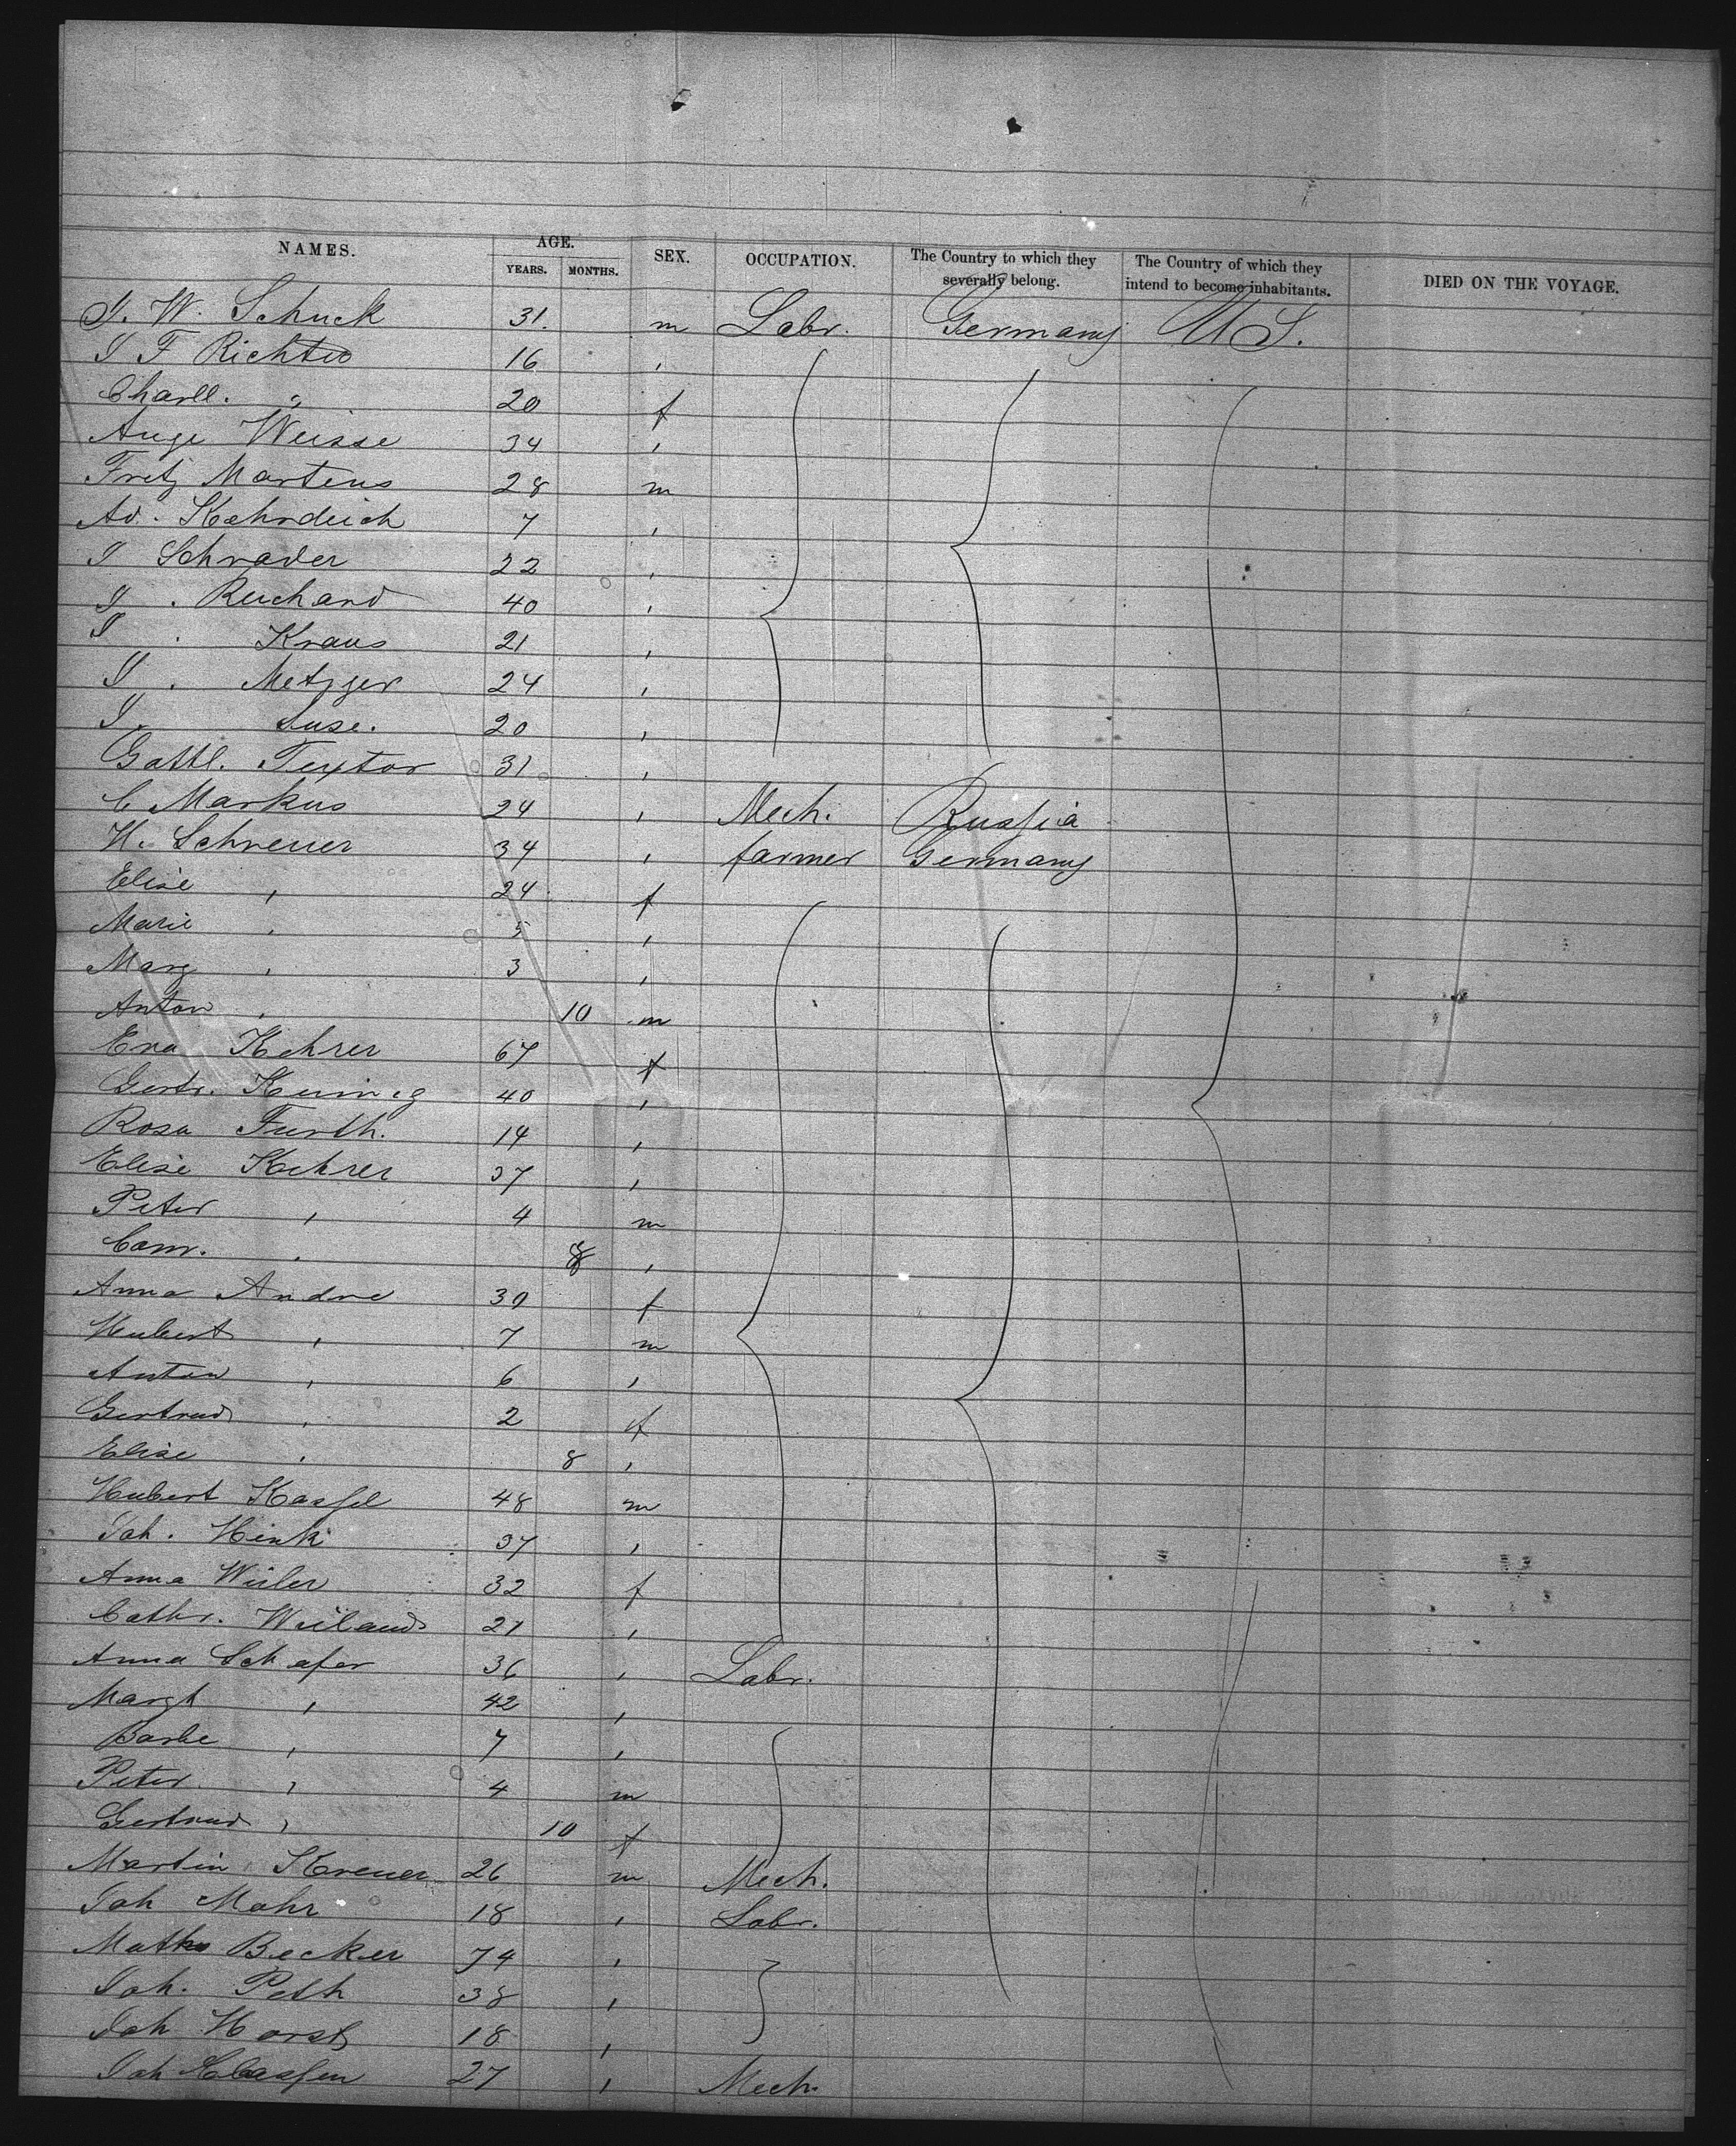 NAMES. AGE. YEARS. MONTHS. SEX. OCCUPATION. The Country to which they severally belong. The Country of which they intend to become inhabitants. DIED ON THE VOYAGE.
J. W. Schuck 31. m Labr. Germany U S.
J F Richter 16 ,
Charll. " 20 f
Auge Weisse 34 ,
Fritz Martens 28 m
Ad. Kehrdeich 7 ,
J Schrader 22 ,
J . Reichard 40 ,
J . Kraus 21 ,
J . Metzger 24 ,
J. Luse. 20 ,
Gottl. Textor 31 ,
C Markus 24 , Mech. Russia
H. Schreuer 34 , farmer Germany
Elise , 24 f
Marie , 5 ,
Marg , 3 ,
Anton , 10 m
Eva Kehrer 67 f
Gertr. 40 ,
Rosa Furth. 14 ,
Elise Kehrer 37 ,
Peter , 4 m
, 8 ,
Anna Andre 39 f
Hubert , 7 m
Anton , 6 ,
Gertrud , 2 f
Elise , 8 ,
Hubert Kassel 48 m
Joh. Hink 37 ,
Anna Weiler 32 f
Cathr. Weiland 21 ,
Anna Schafer 36 , Labr.
Margt , 42 ,
Barbe , 7 ,
Peter , 4 m
Gertrud , 10 f
Martin Kreuer 26 m Mech.
Joh Mohr 18 , Labr.
Becker 74 ,
Joh. Peth 38 ,
Joh Horst 18 ,
Joh Classen 27 , Mech.